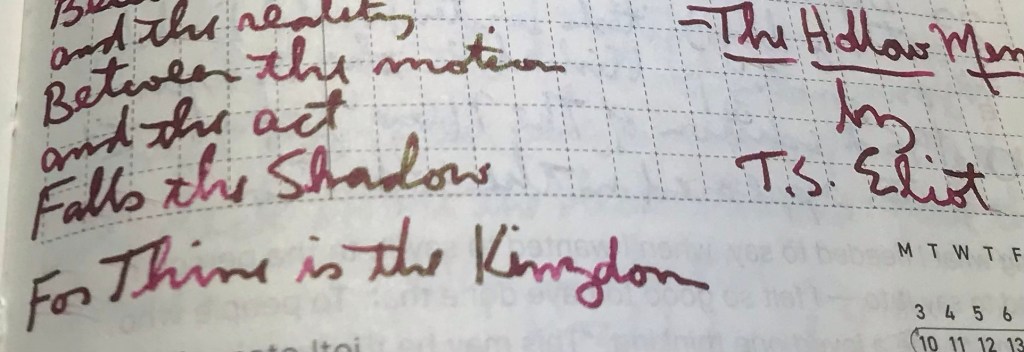 and the reality
Between the motion
and the act
Falls the Shadow
For Thine is the Kingdom
– The Hollow Men
by
T.S. Eliot
M T W T F
3 4 5 6
10 11 12 13
Itoi